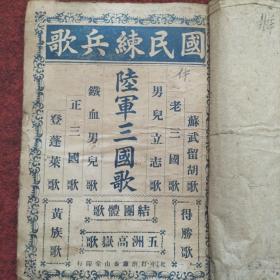 國民練兵歌
蘇武留胡歌
老三國歌
男兒立志歌
陸軍三國歌
鐵血男兒歌
正三國歌
登蓬萊歌
得勝歌
結團體歌
五洲高嶽歌
黃族歌